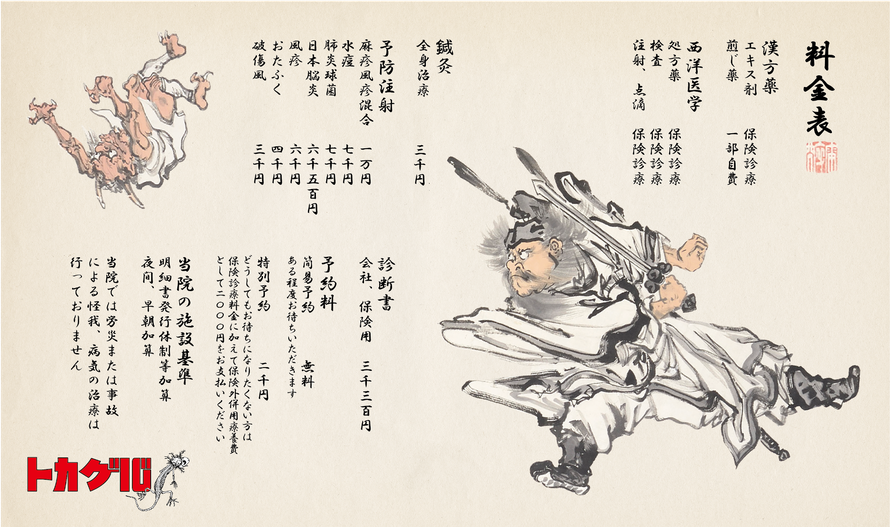 料金表
漢方薬
エキス剤 保険診療
煎じ薬 一部自費
西洋医学
処方薬 保険診療
検査 保険診療
注射、点滴 保険診療
鍼灸
全身治療 三千円
予防注射
麻疹風疹混合 一万円
水痘 七千円
肺炎球菌 七千円
日本脳炎 六千五百円
風疹 六千円
おたふく 四千円
破傷風 三千円
診断書
会社、保険用 三千三百円
予約料
簡易予約 無料
ある程度お待ちいただきます
特別予約 二千円
どうしてもお待ちになりたくない方は
保険診療料金に加えて保険外併用療養費
として二〇〇〇円をお支払いください
当院の施設基準
明細書発行体制等加算
夜間、早朝加算
当院では労災または事故
による怪我、病気の治療は
行っておりません
トカゲ